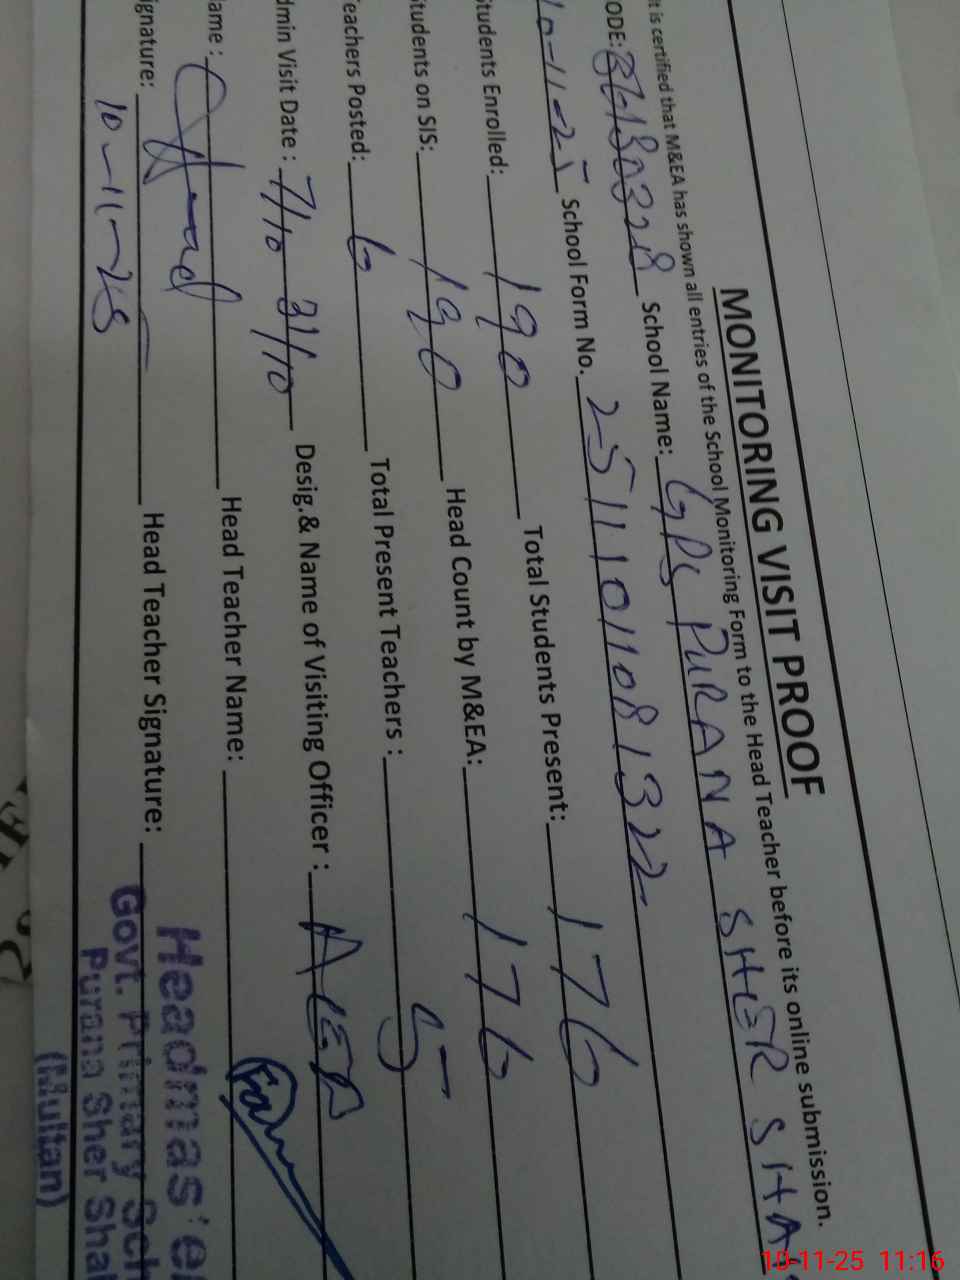 MONITORING VISIT PROOF
It is certified that M&EA has shown all entries of the School Monitoring Form to the Head Teacher before its online submission.
ODE: School Name: GPS PURANA SHER SHA
10-11-25 School Form No. 25111011081322
tudents Enrolled: 190 Total Students Present: 176
tudents on SIS: 190 Head Count by M&EA: 176
eachers Posted: 6 Total Present Teachers : 5
dmin Visit Date : 7/10 31/10 Desig.& Name of Visiting Officer : AEO
ame : Head Teacher Name:
ignature: Head Teacher Signature:
10-11-25
Headmas
Govt. Primary Sch
Purana Sher Shah
(Multan)
10-11-25 11:16